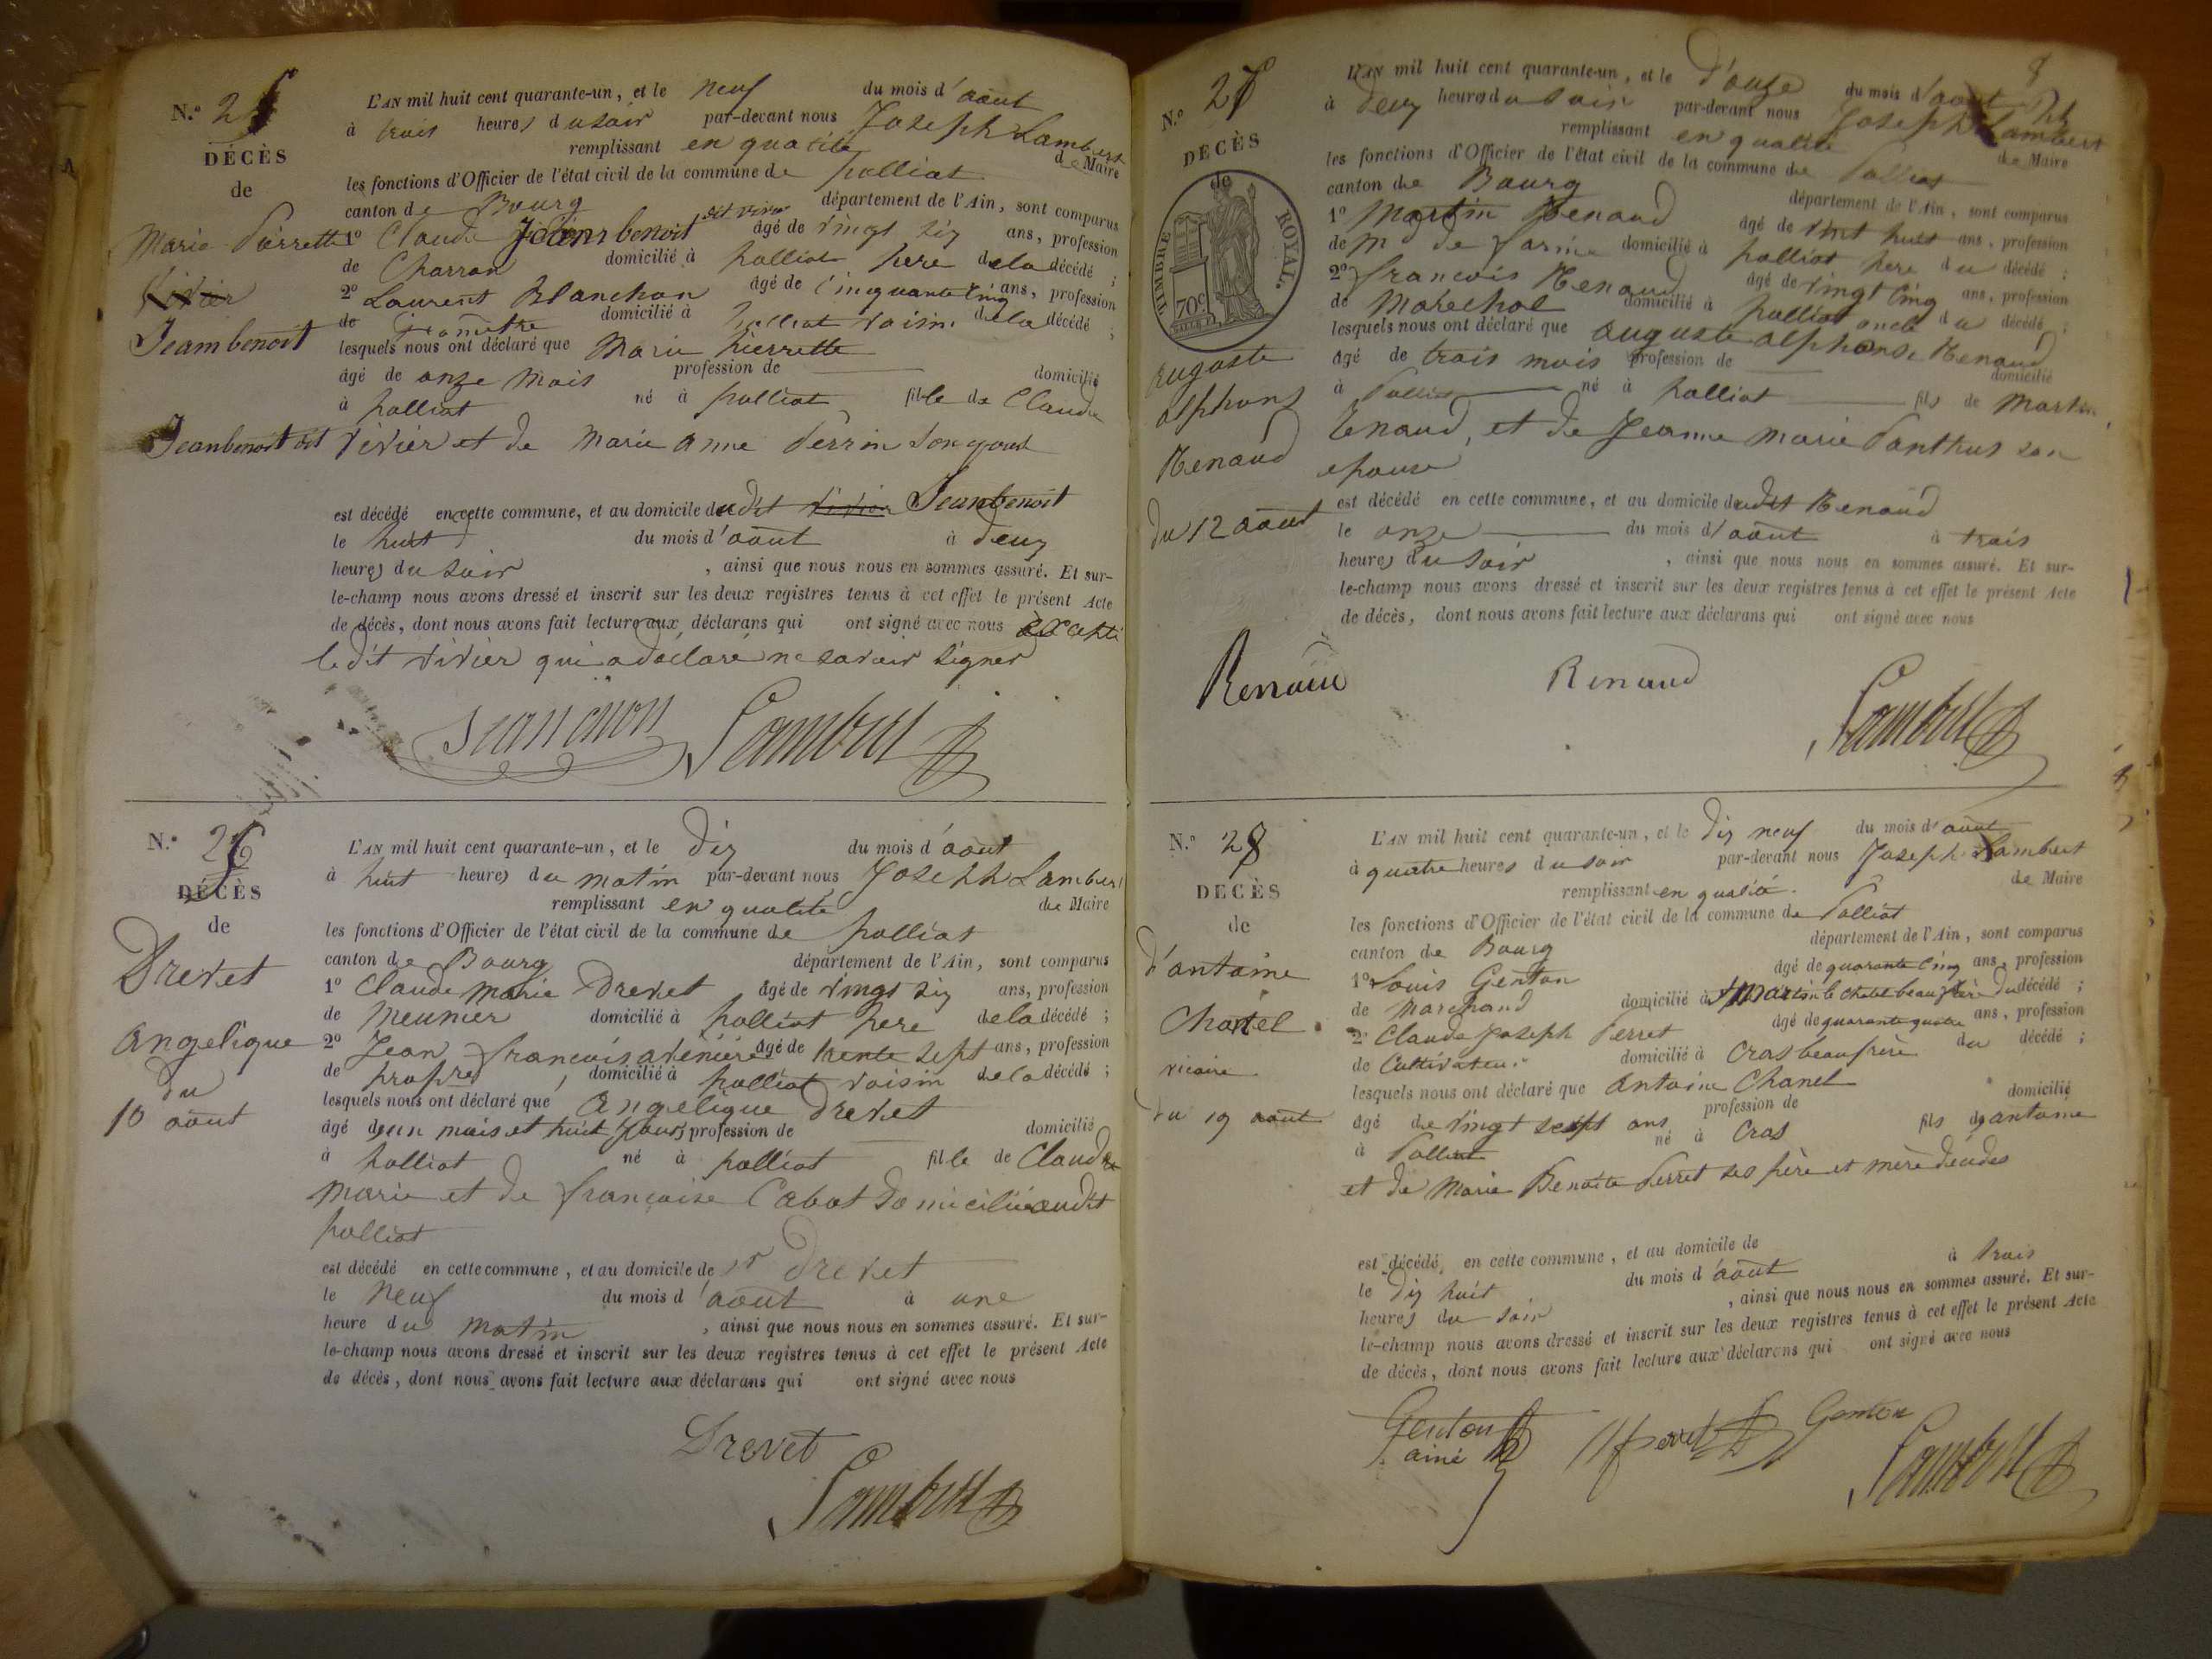 N.° 25
DÉCÈS
de
Marie Pierrette
Vivier
Jeambenoit
L'AN mil huit cent quarante-un, et le neuf du mois d'août
à trois heures du soir par-devant nous Joseph Lambert
remplissant en qualité de Maire
les fonctions d'Officier de l'état civil de la commune de polliat
canton de Bourg département de l'Ain, sont comparus
1° Claude Jeanbenoit dit vivier âgé de vingt six ans, profession
de Charron domicilié à polliat père de la décédé ;
2° Laurent Blanchon âgé de Cinquante Cinq ans, profession
de domicilié à polliat voisin de la décédé ;
lesquels nous ont déclaré que Marie pierrette
âgé de onze mois profession de domicilié
à polliat né à polliat fille de Claude
Jeanbenoit dit vivier et de marie anne Perrin son épouse
est décédé en cette commune, et au domicile dudit vivier Jeanbenoit
le huit du mois d'août à deux
heures du soir , ainsi que nous nous en sommes assuré. Et sur-
le-champ nous avons dressé et inscrit sur les deux registres tenus à cet effet le présent Acte
de décès, dont nous avons fait lecture aux déclarans qui ont signé avec nous
ledit vivier qui a déclaré ne savoir signer
Lambert
N.° 26
DÉCÈS
de
Drevet
angelique
du
10 août
L'AN mil huit cent quarante-un, et le dix du mois d'août
à huit heures du matin par-devant nous Joseph Lambert
remplissant en qualité de Maire
les fonctions d'Officier de l'état civil de la commune de polliat
canton de Bourg département de l'Ain, sont comparus
1° Claude marie Drevet âgé de vingt six ans, profession
de Meunier domicilié à polliat père de la décédé ;
2° Jean françois avenière âgé de trente sept ans, profession
de propre domicilié à polliat voisin de la décédé ;
lesquels nous ont déclaré que Angelique Drevet
âgé d'un mois et huit jours profession de domicilié
à polliat né à polliat fille de Claude
marie et de françoise Cabot domiciliée audit
polliat
est décédé en cette commune, et au domicile de sr Drevet
le Neuf du mois d'août à une
heure du matin , ainsi que nous nous en sommes assuré. Et sur-
le-champ nous avons dressé et inscrit sur les deux registres tenus à cet effet le présent Acte
de décès, dont nous avons fait lecture aux déclarans qui ont signé avec nous
Drevet
Lambert
8
N.° 27
DÉCÈS
de
TIMBRE ROYAL.
70c
auguste
alphons
Renaud
du 12 août
L'AN mil huit cent quarante-un, et le d'ouze du mois d'août
à deux heures du soir par-devant nous Joseph Lambert
remplissant en qualité de Maire
les fonctions d'Officier de l'état civil de la commune de Polliat
canton de Bourg département de l'Ain, sont comparus
1° Martin Renaud âgé de vint huit ans, profession
de md de farine domicilié à polliat père du décédé ;
2° françois Renaud âgé de vingt Cinq ans, profession
de Maréchal domicilié à polliat oncle du décédé ;
lesquels nous ont déclaré que auguste alphonse Renaud
âgé de trois mois profession de domicilié
à Polliat né à polliat fils de Martin
Renaud, et de Jeanne marie Panthus son
epouse
est décédé en cette commune, et au domicile dudit Renaud
le onze du mois d'août à trois
heures du soir , ainsi que nous nous en sommes assuré. Et sur-
le-champ nous avons dressé et inscrit sur les deux registres tenus à cet effet le présent Acte
de décès, dont nous avons fait lecture aux déclarans qui ont signé avec nous
Renaud
Renaud
Lambert
N.° 28
DÉCÈS
de
d'antoine
Chanel
vicaire
du 19 août
L'AN mil huit cent quarante-un, et le dix neuf du mois d'août
à quatre heures du soir par-devant nous Joseph Lambert
remplissant en qualité de Maire
les fonctions d'Officier de l'état civil de la commune de Polliat
canton de Bourg département de l'Ain, sont comparus
1° Louis Genton âgé de quarante Cinq ans, profession
de Marchand domicilié à St Martin le Chatel beau frère du décédé ;
2° Claude Joseph Perret âgé de quarante quatre ans, profession
de Cultivateur domicilié à Cras beau frère du décédé ;
lesquels nous ont déclaré que Antoine Chanel
âgé de vingt sept ans profession de domicilié
à Polliat né à Cras fils d'antoine
et de Marie Benoite Perret ses père et mère décédés
est décédé en cette commune, et au domicile de
le dix huit du mois d'août à trois
heures du soir , ainsi que nous nous en sommes assuré. Et sur-
le-champ nous avons dressé et inscrit sur les deux registres tenus à cet effet le présent Acte
de décès, dont nous avons fait lecture aux déclarans qui ont signé avec nous
Genton
ainé
Perret
Genton
Lambert